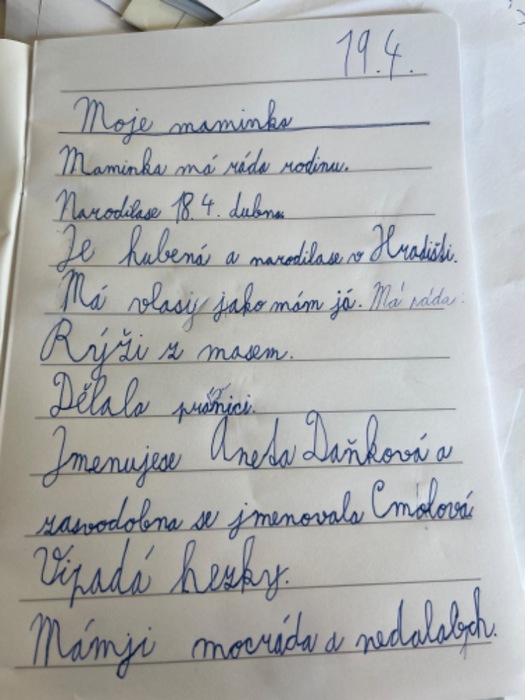 19.4.
Moje maminka
Maminka má ráda rodinu.
Narodilase 18.4. dubna
Je hubená a narodilase v Hradišti.
Má vlasy jako mám já. Má ráda:
Rýži z masem.
Dělala
Jmenujese Aneta Daňková a
zasvodobna se jmenovala Cmolová
Vipadá hezky.
Mámji mocráda a nedalabych.